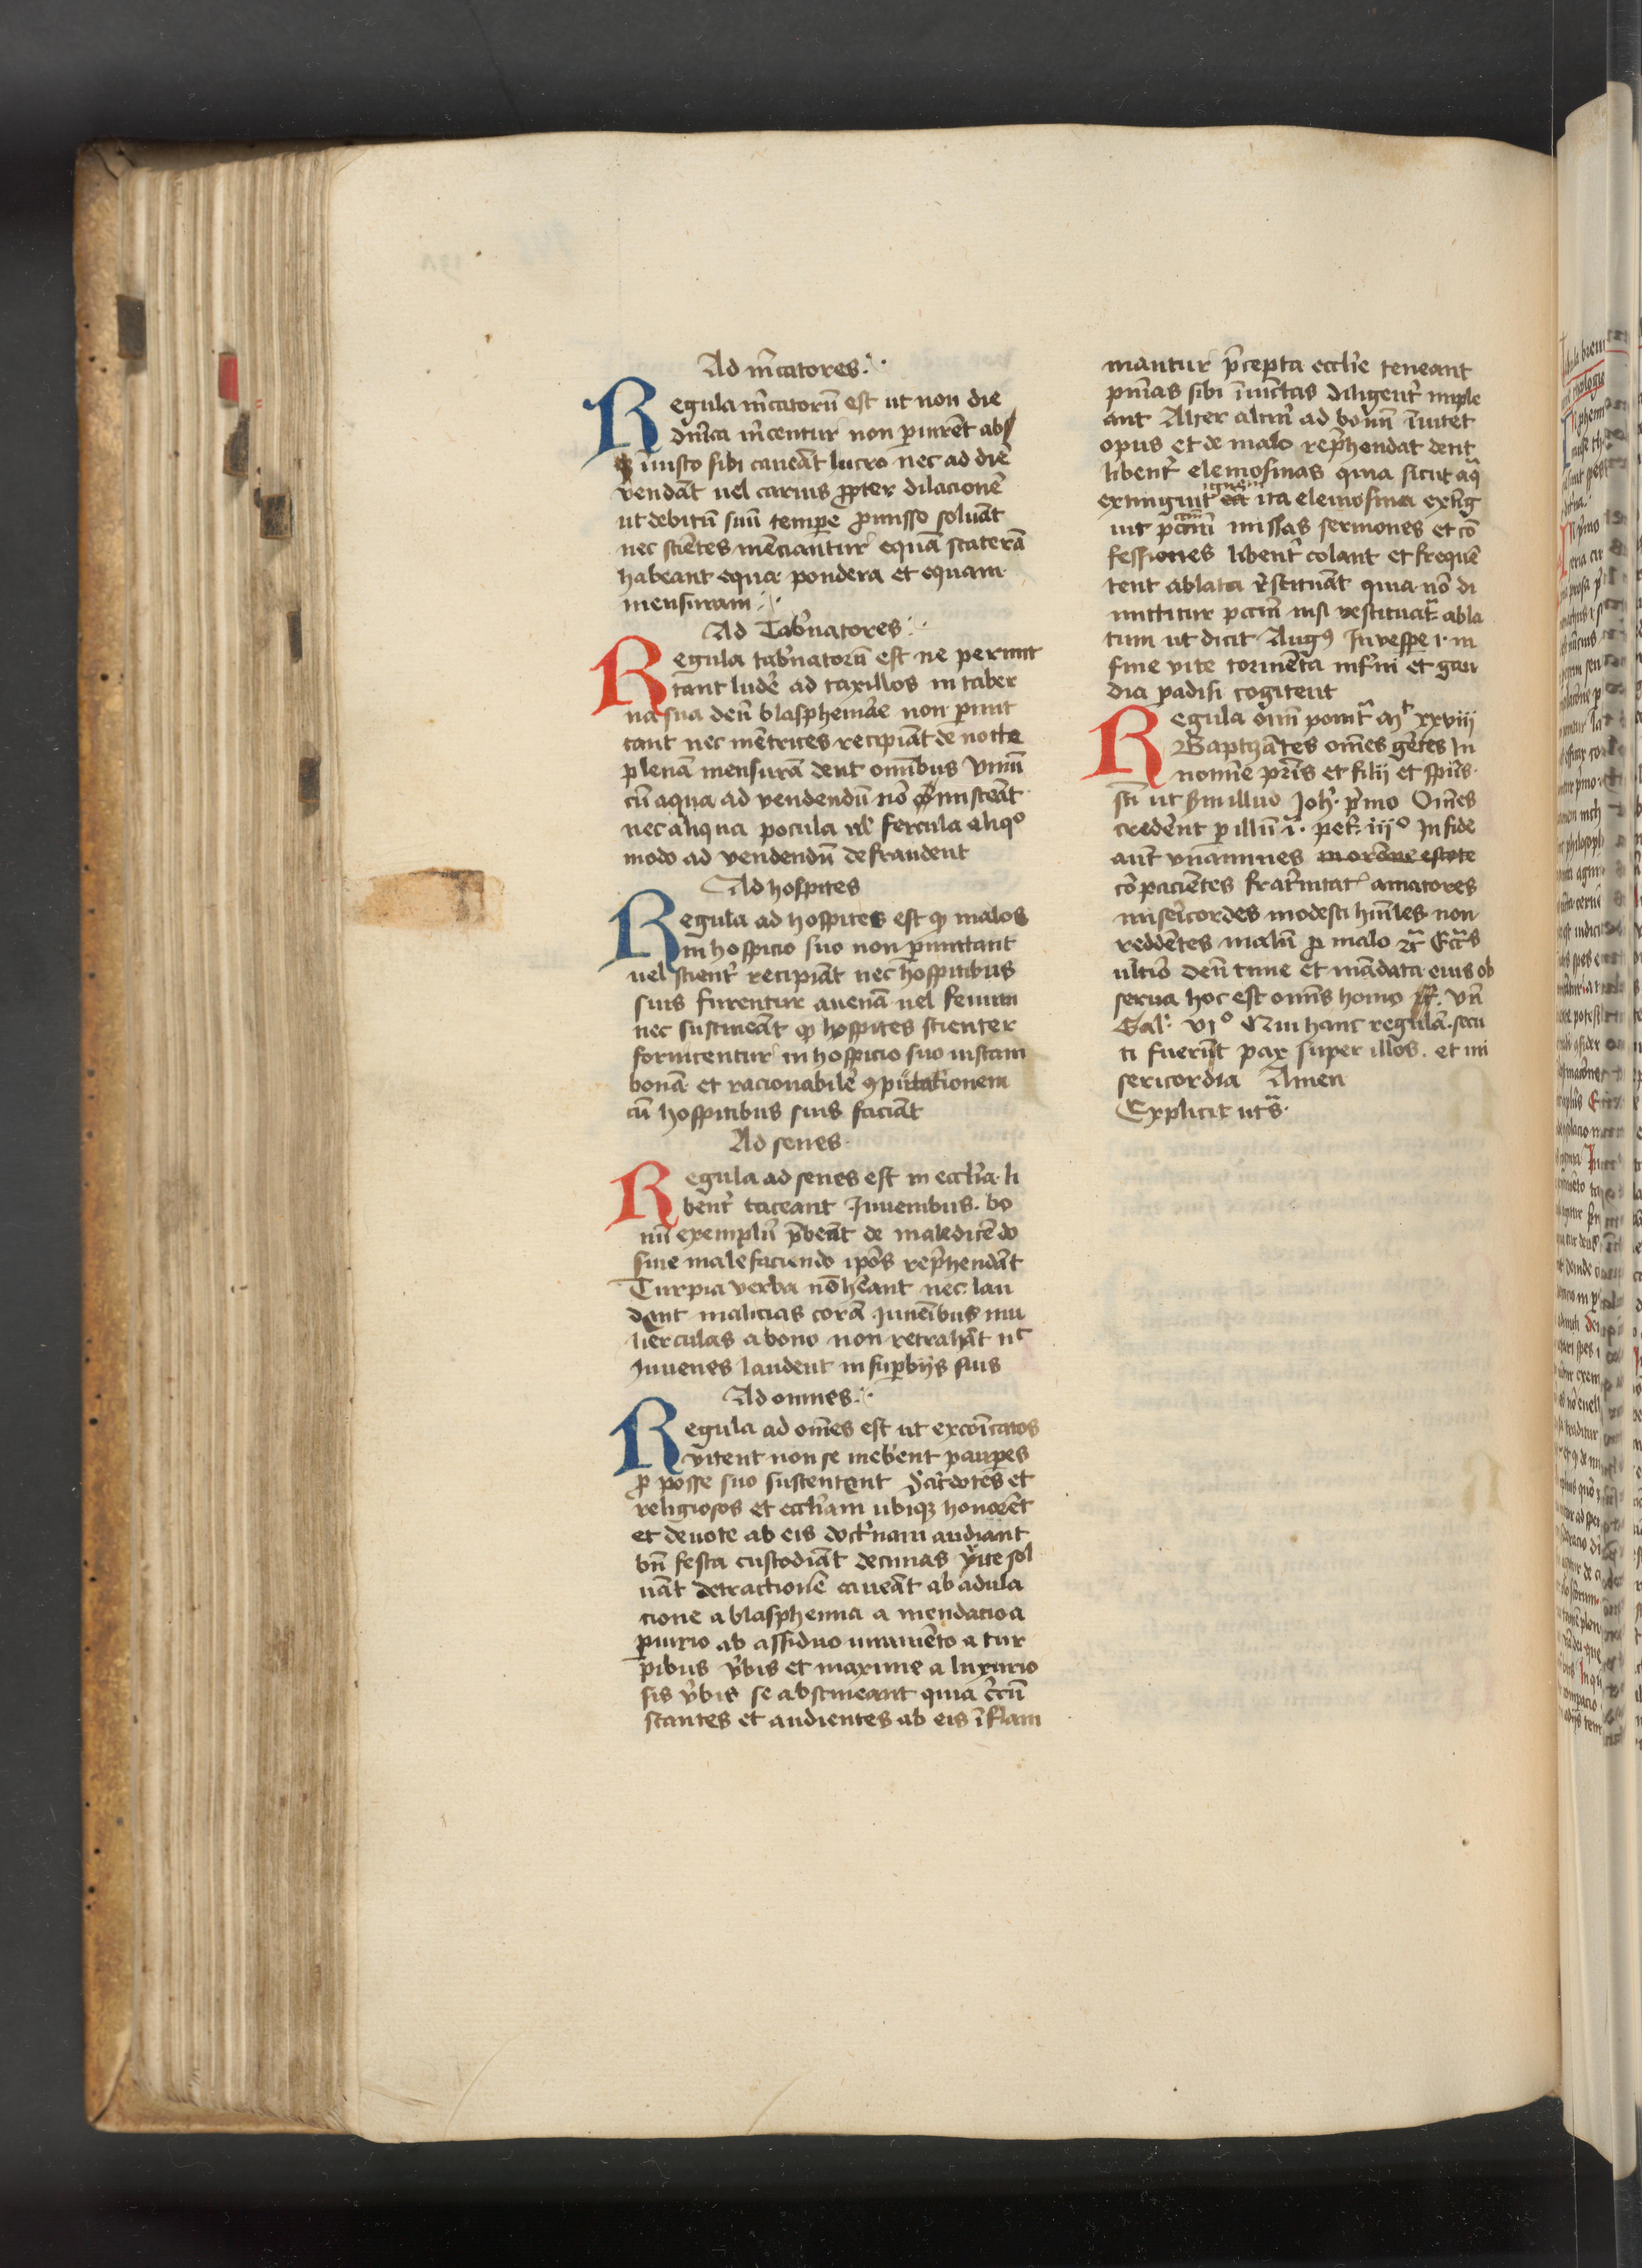 Ad m̄catores
Regula m̄catorū est ut non die
dn̄ica m̄centur non piurēt abs
qꝫ iniusto sibi caueāt lucro nec ad diē
vendāt uel carius ꝓpter dilacionē
ut debitū suū tempe ꝓmisso soluāt
nec sciētes mēciantur equā staterā
habeant equa pondera et equam
mensuram
Ad Tab̓natores
Regula tab̓natorū est ne permit
tant lude̓ ad taxillos in taber
na sua deū blasphemāe non pmit
tant nec me̓trices recipiāt de nocte
plenā mensurā dent om̄ibus vinū
cū aqua ad vendendū nō misceāt
nec aliqua pocula ul̓ fercula aliqo
modo ad vendendū defraudent
Ad hospites
Regula ad hospites est ꝙ malos
in hospicio suo non pmittant
uel scient̓ recipiāt nec hospitibus
suis furentur auenā uel fenum
nec sustineāt ꝙ hospites scienter
fornicentur in hospicio suo iustam
bonā et racionabilē ꝯputationem
cū hospitibus suis faciāt
Ad senes
Regula ad senes est in eccl̄ia li
bent̓ taceant Juuenibus bo
nū exemplū p̄beāt de maledicēdo
siue malefaciendo ipōs rep̓hendāt
Turpia verba nō hēant nec lau
dent malicias corā Juuēibus mu
lierculas a bono non retrahāt nc
Juuenes laudent in supbijs suis
Ad omnes
Regula ad om̄es est ut excōicatos
vitent non se inebient paupes
ꝓ posse suo sustentent sac̓dotes et
religiosos et eccl̄iam ubiqꝫ honorēt
et deuote ab eis doct̓nam audiant
bn̄ festa custodiāt decimas rite sol
uāt detractionē caueāt ab adula
cione a blasphemia a mendacio a
piurio ab assiduo iuramēto a tur
pibus v̓bis et maxime a luxurio
sis v̓bis se abstineant quia c̓cū
stantes et audientes ab eis īflam
mantur p̄cepta eccl̄ie teneant
pn̄ias sibi īiūctas diligent̓ imple
ant Alter alt̓m ad bonū īuitet
opus et de malo rep̓hendat dent
libent̓ elemosinas quia sicut aq̄
extinguit ignem ita elemosina extīg
uit pccm̄ missas sermones et cō
fessiones libent̓ colant et frequē
tent ablata r̓stituāt quia nō di
mittitur pccm̄ nisi restituat̓ abla
tum ut dicit Augꝰ In vespe i· in
fine vite tormēta inf̓ni et gau
dia padisi cogitent
Regula om̄i ponit̓ Mt xxviii
Baptizātes om̄es gētes In
noīne pr̄is et filij et spūs
sc̄i ut Joh̓· p̓mo Om̄es
crede̓nt p illū i· pet̓· iij⁰ In fide
aut vnanimes
cōpacientes frat̓nitatꝭ amatores
miseri̓cordes modesti hūiles non
reddētes malū ꝓ malo
ultīo deū time et mādata eius ob
serua hoc est om̄is homo Vn̄
Gal· VI⁰ Qui hanc regulā secu
ti fuerūt pax super illos et mi
sericordia Amen
Explicit